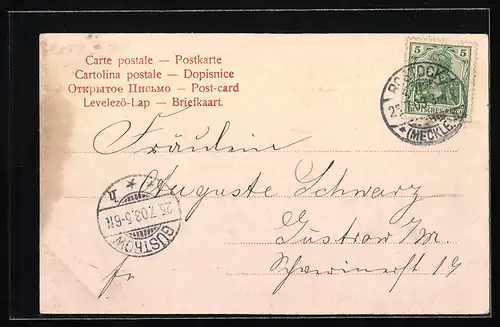 Carte postale — Postkarte
Cartolina postale — Dopisnice
Открытое Письмо — Post-card
Levelező-Lap — Briefkaart.
5 5
ROSTOCK
(MECKLB.)
Fräulein
Auguste Schwarz
Güstrow i/M
Schwerinerst 19
fr
GÜSTROW
25.7.03.5-6N